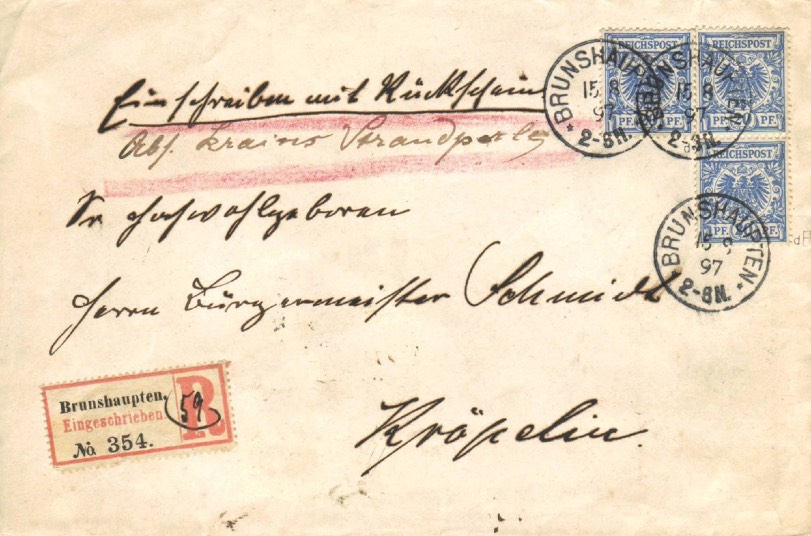 Einschreiben mit Rückschein
Abs.
Sr Hochwohlgeboren
Herrn Bürgermeister Schmidt
Kröpelin.
REICHSPOST
PF. PF.
REICHSPOST
PF. PF.
REICHSPOST
PF. PF.
BRUNSHAUPTEN
15 8
97
2-8N.
BRUNSHAUPTEN
15 8
97
2-8N.
BRUNSHAUPTEN
15 8
97
2-8N.
Brunshaupten. 59
Eingeschrieben. R
No. 354.